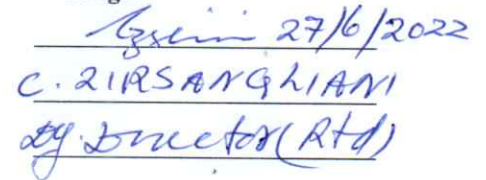 27/6/2022
C. ZIRSANGLIANI
Dy. Director (Rtd)